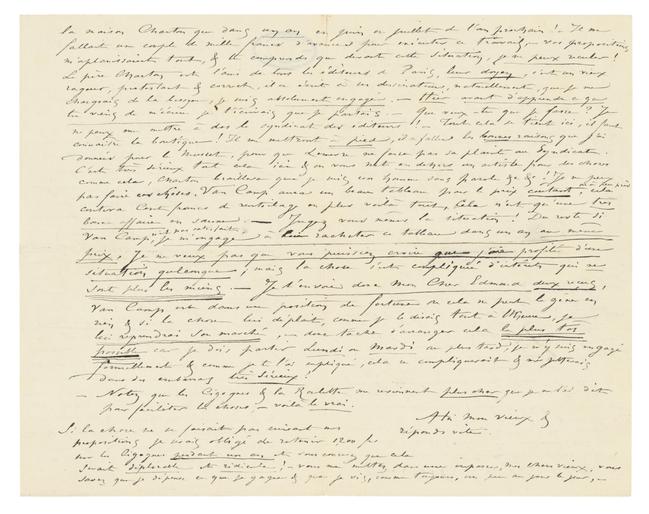 la maison Charton que dans un an en juin ou juillet de l'an prochain! – Il me
fallait un couple de mille francs d'avances pour exécuter ce travail, – vos propositions
m'aplanissaient tout, & tu comprends que devant cette situation, je ne peux reculer!
Le père Charton est l'ami de tous les éditeurs de Paris, leur doyen, c'est un vieux
protestant & correct, et
chargerais de la je suis absolument engagé. – Hier avant d'apprendre ce que
tu viens de m'écrire je que je partais. – Que veux-tu que je fasse? Je
ne peux me mettre à dos le syndicat des éditeurs! – Tout cela se tient ici, il faut
connaître la boutique! Il me mettront à pied, il a fallu les bonnes raisons que j'ai
données pour le Musset, pour que Lemerre ne fasse pas sa plainte au Syndicat.
C'est très sérieux tout cela ici & on vous met en dehors un artiste pour des choses
comme cela, Charton braillera que je suis un homme sans parole &c &! Je ne peux
pas faire ces choses. Van Camp aura un beau tableau pour le prix coutant: cela
coutera cent francs de en plus voilà tout, Cela n'est qu'une très
bonne affaire en somme. – Jugez vous même la situation! Du reste si
Van Camp n'est pas satisfait, je m'engage à lui racheter ce tableau dans un an au même
prix. Je ne veux pas que vous puissiez croire que j'aie profité d'une
situation quelconque, mais la chose s'est compliquée d'intérêts qui ne
sont plus les miens. – Je t'envoie donc mon Cher Edmond deux reçus,
Van Camp est dans une position de fortune où cela ne peut le gêner en
rien & si la chose lui déplait, comme je le disais tout à l'heure, je
lui reprendrai son marché – donc tache d'arranger cela le plus tôt
possible car je dois partir Lundi ou Mardi au plus tard, je m'y suis engagé
formellement & comme je te l'ai expliqué, cela me compliquerait & me jetterait
dans des embarras très sérieux!
– Notez que les Cigognes & la Roulotte me reviennent plus cher que je n'ai dit
pour faciliter les choses – voilà le vrai.
A toi mon vieux &
réponds vite.
Si la chose ne se faisait pas suivant nos
propositions je serais obligé de retenir 1200 frs
sur les Cigognes pendant un an et vous concevez que cela
serait déplorable et ridicule! – vous me mettez dans une impasse, mes chers vieux, vous
savez que je dépense ce que je gagne & que je vis, comme toujours, un peu au jour le jour, –